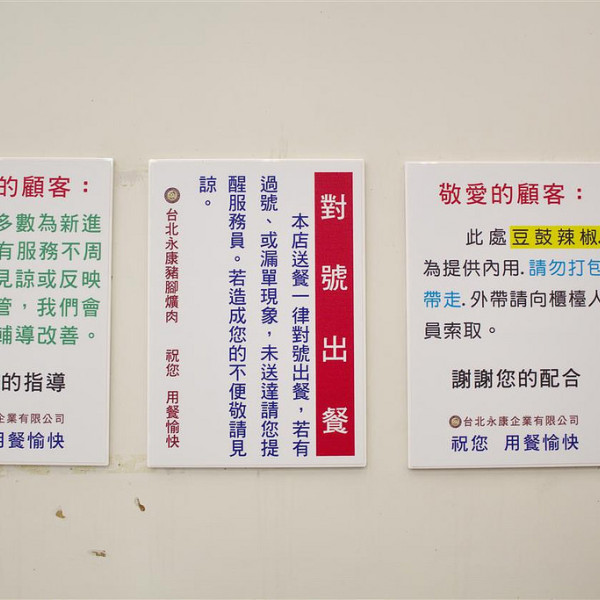 的顧客：
多數為新進
有服務不周
見諒或反映
管，我們會
輔導改善。
的指導
企業有限公司
用餐愉快
對號出餐
本店送餐一律對號出餐，若有
過號、或漏單現象，未送達請您提
醒服務員。若造成您的不便敬請見
諒。
台北永康豬腳爌肉 祝您 用餐愉快
敬愛的顧客：
此處豆鼓辣椒
為提供內用.請勿打包
帶走.外帶請向櫃檯人
員索取。
謝謝您的配合
台北永康企業有限公司
祝您 用餐愉快